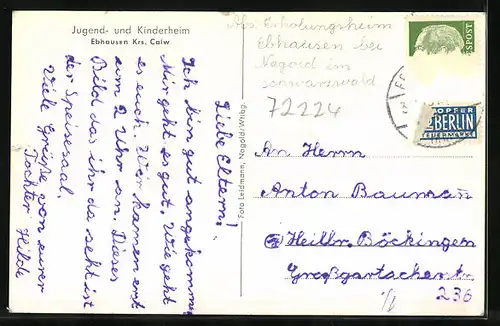 Jugend- und Kinderheim
Ebhausen Krs. Calw
Liebe Eltern!
Ich bin gut angekommen
Mir geht es gut. Wie geht
es euch. Wir kamen erst
um 2 Uhr an. Dieses
Bild das ihr da seht ist
der Speisesaal.
Viele Grüße von eurer
Tochter Hilde
Foto Leidmann, Nagold/Wttbg.
Abs. Erholungsheim
Ebhausen bei
Nagold im
schwarzwald
72224
SPOST
NOTOPFER
2 BERLIN
STEUERMARKE
An Herrn
Anton Baumann
Heilbr. Böckingen
Großgartacherstr.
236